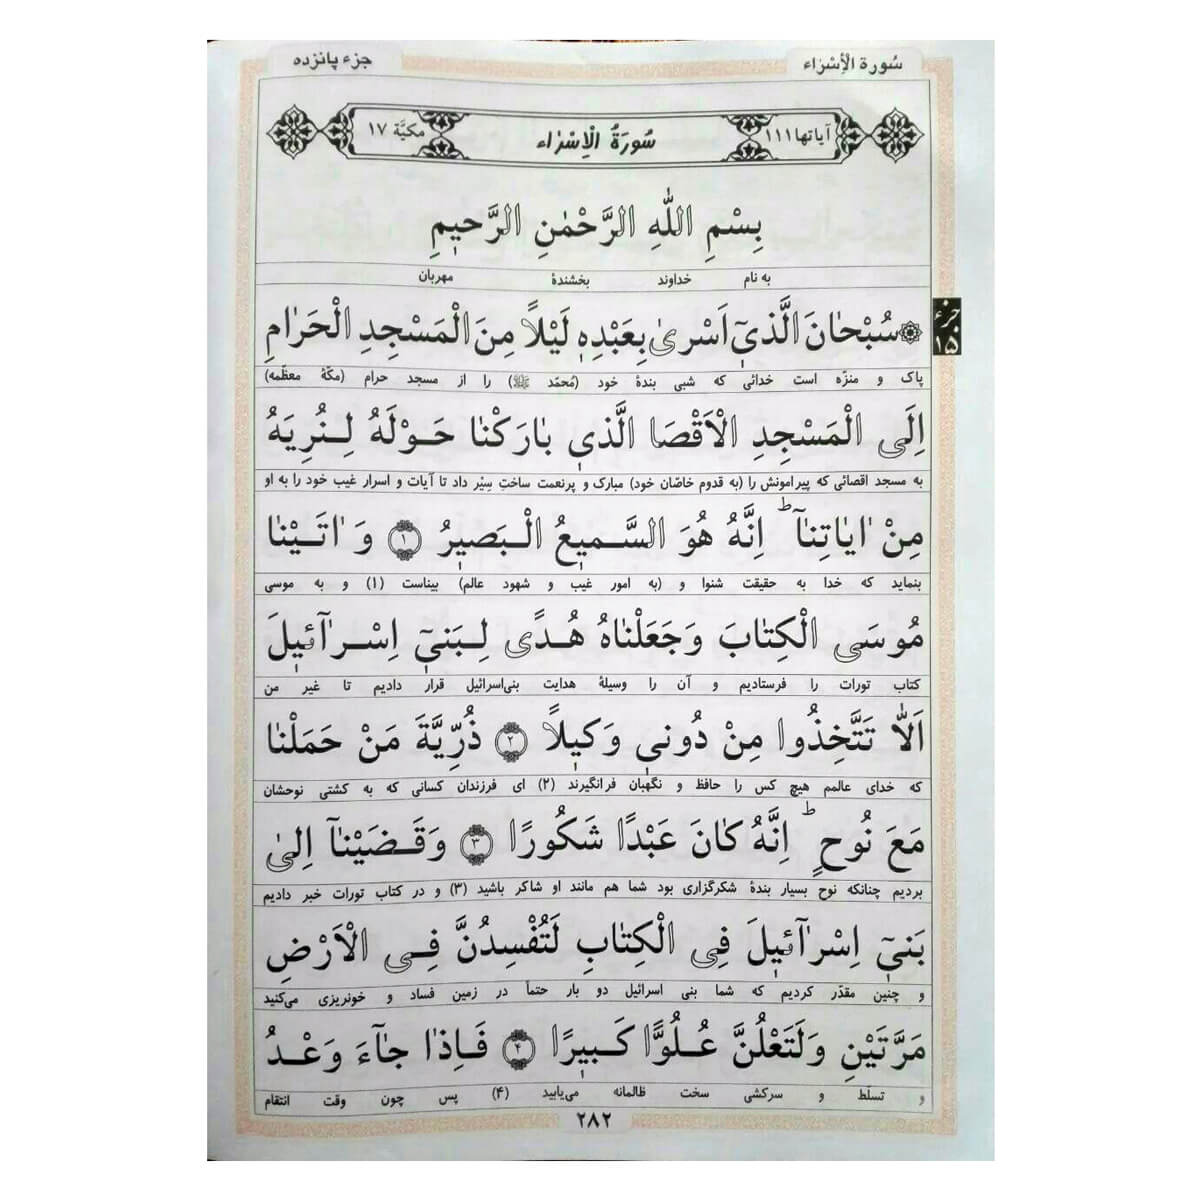 سُورة الْأِسْرٰاء
جزء پانزده
آیاتها ۱۱۱
سُورَةُ الْاِسْرٰاء
مکیَّة ۱۷
بِسْمِ اللّٰهِ الرَّحْمٰنِ الرَّحيمِ
به نام خداوند بخشندهٔ مهربان
سُبْحٰانَ الَّذيٓ اَسْرىٰ بِعَبْدِهٖ لَيْلاً مِنَ الْمَسْجِدِ الْحَرٰامِ
جزء ۱۵
پاک و منزّه است خدائی که شبی بندهٔ خود (مُحمّد ﷺ) را از مسجد حرام (مکّهٔ معظّمه)
اِلَى الْمَسْجِدِ الْاَقْصَا الَّذي بٰارَكْنٰا حَوْلَهُ لِنُرِيَهُ
به مسجد اقصائی که پیرامونش را (به قدوم خاصّان خود) مبارک و پرنعمت ساختِ سِیْر داد تا آیات و اسرار غیب خود را به او
مِنْ اٰيٰاتِنٰآ ؕ اِنَّهُ هُوَ السَّميعُ الْبَصيرُ ﴿۱﴾ وَ اٰتَيْنٰا
بنماید که خدا به حقیقت شنوا و (به امور غیب و شهود عالم) بیناست (۱) و به موسی
مُوسَى الْكِتٰابَ وَجَعَلْنٰاهُ هُدًى لِبَنيٓ اِسْرٰآئيلَ
کتاب تورات را فرستادیم و آن را وسیلهٔ هدایت بنی‌اسرائیل قرار دادیم تا غیر من
اَلّٰا تَتَّخِذُوا مِنْ دُوني وَكيلاً ﴿۲﴾ ذُرِّيَّةَ مَنْ حَمَلْنٰا
که خدای عالمم هیچ کس را حافظ و نگهبان فرانگیرند (۲) ای فرزندان کسانی که به کشتی نوحشان
مَعَ نُوحٍ ؕ اِنَّهُ كٰانَ عَبْدًا شَكُورًا ﴿۳﴾ وَقَضَيْنٰآ اِلىٰ
بردیم چنانکه نوح بسیار بندهٔ شکرگزاری بود شما هم مانند او شاکر باشید (۳) و در کتاب تورات خبر دادیم
بَنيٓ اِسْرٰآئيلَ فِي الْكِتٰابِ لَتُفْسِدُنَّ فِي الْاَرْضِ
و چنین مقدّر کردیم که شما بنی اسرائیل دو بار حتماً در زمین فساد و خونریزی می‌کنید
مَرَّتَيْنِ وَلَتَعْلُنَّ عُلُوًّا كَبيرًا ﴿۴﴾ فَاِذٰا جٰآءَ وَعْدُ
و تسلّط و سرکشی سخت ظالمانه می‌یابید (۴) پس چون وقت انتقام
۲۸۲